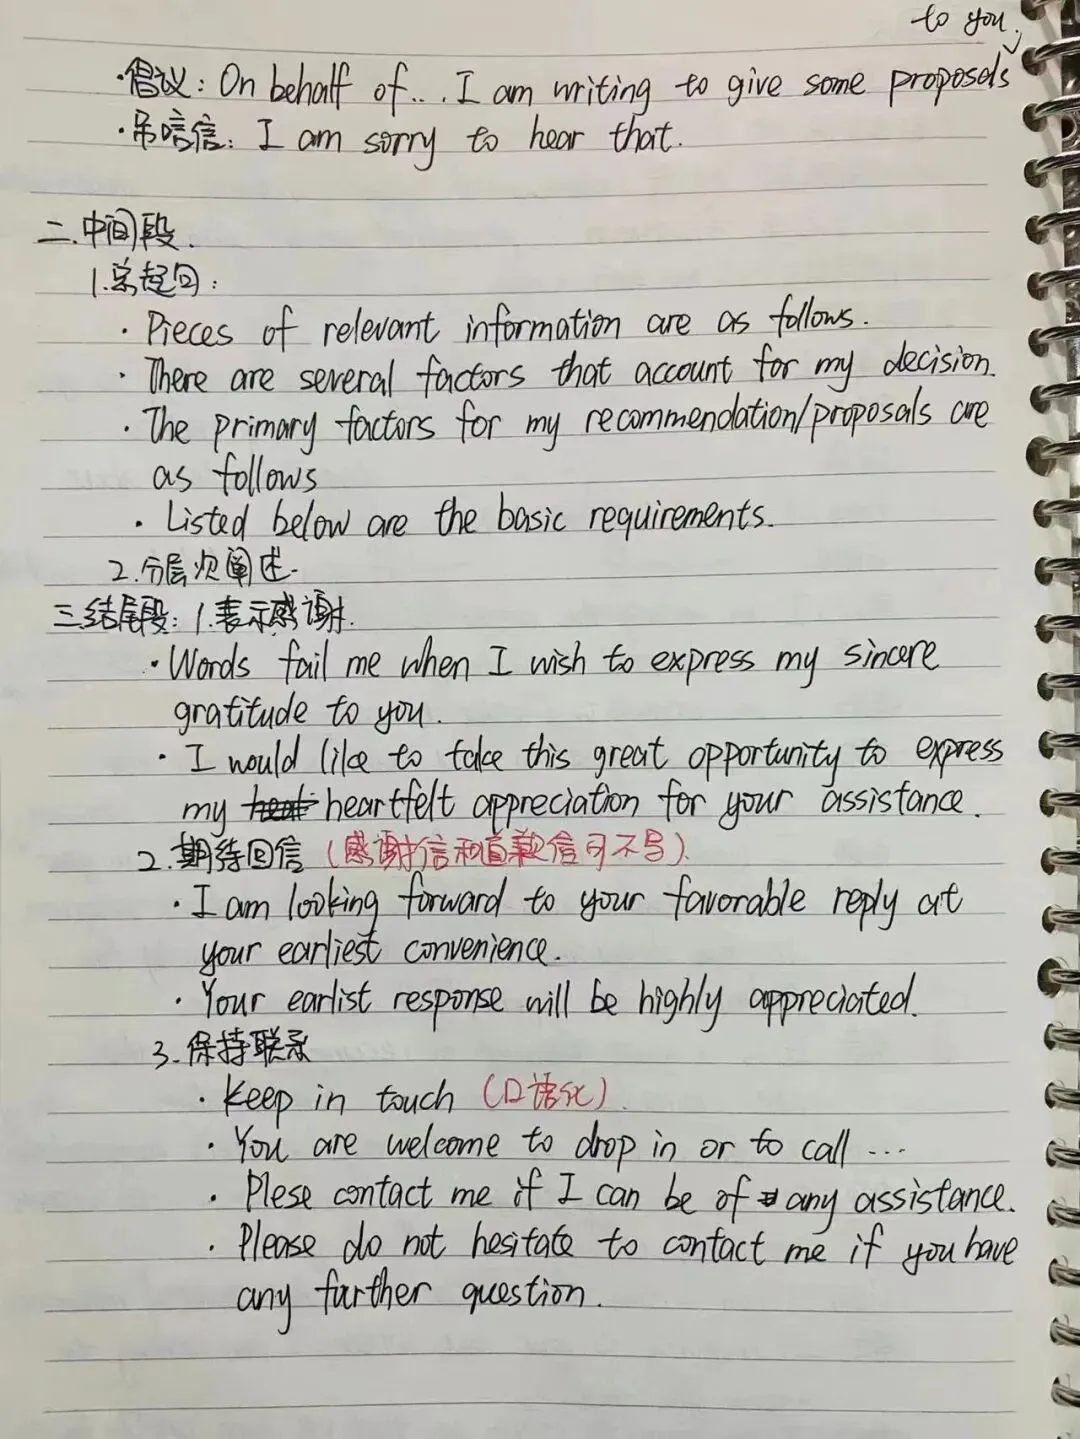 to you.
·倡议: On behalf of... I am writing to give some proposals
·吊唁信: I am sorry to hear that.
二.中间段.
1.总起句:
· Pieces of relevant information are as follows.
· There are several factors that account for my decision.
· The primary factors for my recommendation/proposals are
as follows
· Listed below are the basic requirements.
2.分层次阐述.
三.结尾段: 1.表示感谢.
· Words fail me when I wish to express my sincere
gratitude to you.
· I would like to take this great opportunity to express
my heartfelt appreciation for your assistance.
2.期待回信 (感谢信和道歉信可不写).
· I am looking forward to your favorable reply at
your earliest convenience.
· Your earlist response will be highly appreciated.
3.保持联系
· Keep in touch (口语化)
· You are welcome to drop in or to call ...
· Plese contact me if I can be of any assistance.
· Please do not hesitate to contact me if you have
any further question.